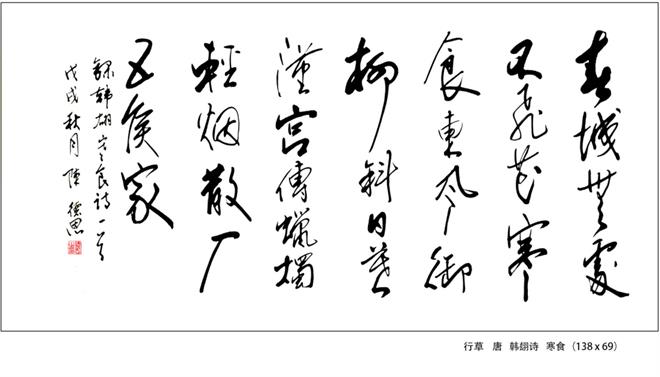 春城無處
不飛花寒
食東風御
柳斜日暮
漢宮傳蠟燭
輕烟散入
五侯家
録韩翃寒食诗一首
戊戌秋月 陳德思
行草 唐 韩翃诗 寒食 (138 x 69)